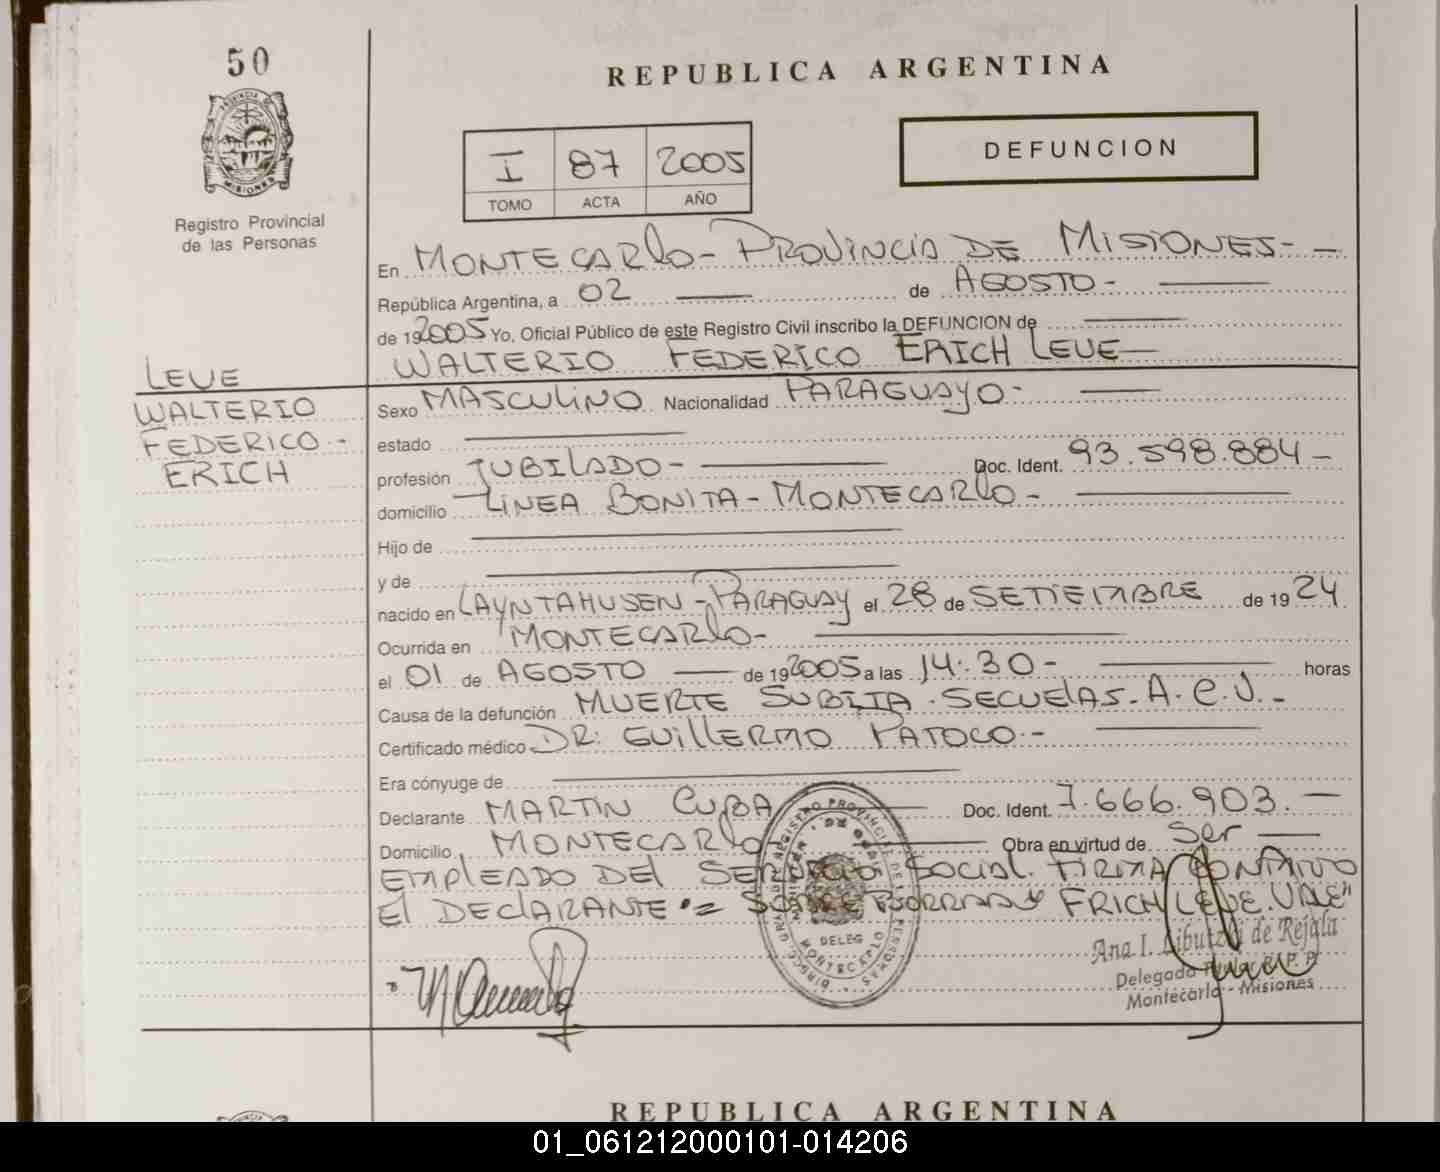 50
REPUBLICA ARGENTINA
PROVINCIA DE
MISIONES
Registro Provincial
de las Personas
I 87 2005
TOMO ACTA AÑO
DEFUNCION
En MONTECARLO - PROVINCIA DE MISIONES - -
República Argentina, a 02 de AGOSTO -
de 192005 Yo, Oficial Público de este Registro Civil inscribo la DEFUNCION de
WALTERIO FEDERICO ERICH LEUE
LEUE
WALTERIO
FEDERICO -
ERICH
Sexo MASCULINO Nacionalidad PARAGUAYO -
estado
profesión JUBILADO - Doc. Ident. 93.598.884 -
domicilio LINEA BONITA - MONTECARLO -
Hijo de
y de
nacido en LAYNTAHUSEN - PARAGUAY el 28 de SETIEMBRE de 1924
Ocurrida en MONTECARLO -
el 01 de AGOSTO de 192005 a las 14:30 - horas
Causa de la defunción MUERTE SUBITA. SECUELAS - A.C.V. -
Certificado médico DR. GUILLERMO PATOCO -
Era cónyuge de
Declarante MARTIN CUBA Doc. Ident. 7.666.903. -
Domicilio MONTECARLO Obra en virtud de Ser
EMPLEADO DEL SERVICIO SOCIAL. FIRMA CONMIGO
El DECLARANTE SOBRE BORRADO ERICH LEUE. VALE"
DELEG
MONTECARLO
Ana I. de Rejala
Delegada Titular R.P.P.
Montecarlo - Misiones
REPUBLICA ARGENTINA
01_061212000101-014206